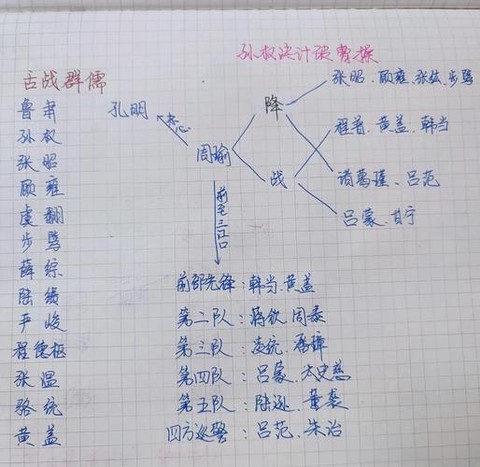 孙权决计破曹操
古战群儒
鲁肃
孙权
张昭
顾雍
虞翻
步骘
薛综
陆绩
严峻
程德枢
张温
骆统
黄盖
孔明
周瑜
降
战
张昭、顾雍、张纮、步骘
程普、黄盖、韩当
诸葛瑾、吕范
吕蒙、甘宁
前至三江口
前部先锋:韩当、黄盖
第二队:蒋钦、周泰
第三队:凌统、潘璋
第四队:吕蒙、太史慈
第五队:陆逊、董袭
四方巡警:吕范、朱治